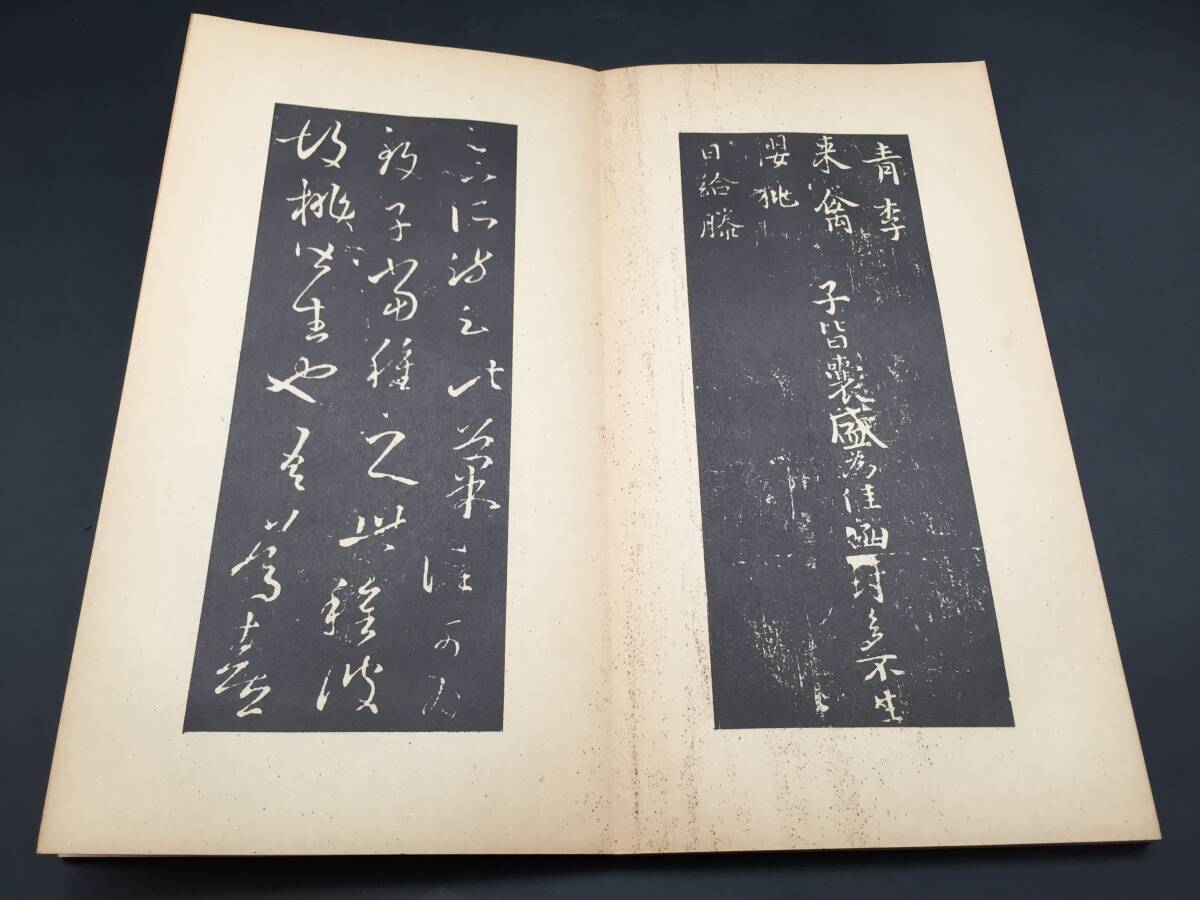 青李
来禽
櫻桃
日給滕
子皆囊盛為佳函封多不生
足下所疏云此菓佳可為
致子當種之此種彼
胡桃皆生也吾篤喜